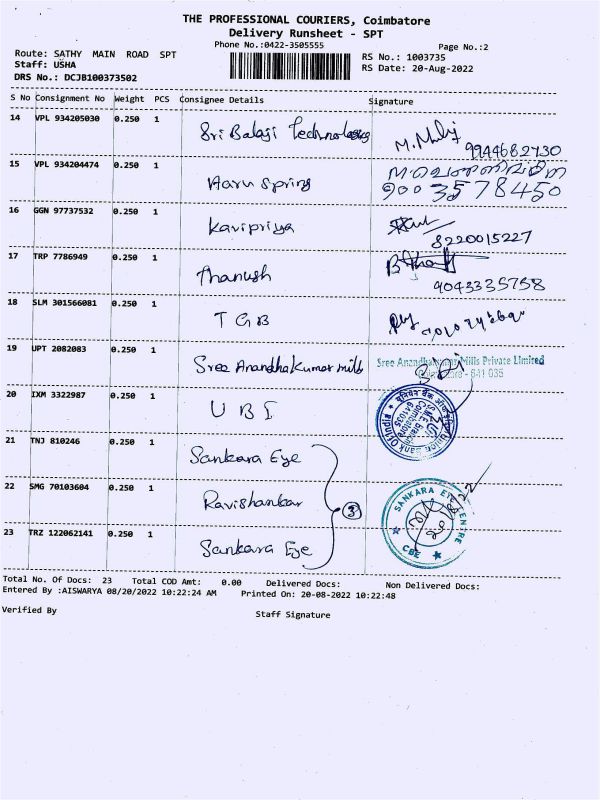 THE PROFESSIONAL COURIERS, Coimbatore
Delivery Runsheet - SPT
Phone No.:0422-3505555
Page No.:2
Route: SATHY MAIN ROAD SPT
Staff: USHA
DRS No.: DCJB100373502
RS No.: 1003735
RS Date: 20-Aug-2022
S No Consignment No Weight PCS Consignee Details Signature
14 VPL 934205030 0.250 1 Sri Balaji Technologies 9944682730
15 VPL 934204474 0.250 1 Haru Spring 9003578450
16 GGN 97737532 0.250 1 Kavipriya 8220015227
17 TRP 7786949 0.250 1 Thanush 9043335758
18 SLM 301566081 0.250 1 TGB
19 UPT 2082083 0.250 1 Sree Anandhakumar mills Sree Anandhakumar Mills Private Limited
Coimbatore - 641 035
20 IXM 3322987 0.250 1 UBI
21 TNJ 810246 0.250 1 Sankara Eye
22 SMG 70103604 0.250 1 Ravishankar 3 SANKARA EYE CENTRE
CBE
23 TRZ 122062141 0.250 1 Sankara Eye
Total No. Of Docs: 23 Total COD Amt: 0.00 Delivered Docs: Non Delivered Docs:
Entered By :AISWARYA 08/20/2022 10:22:24 AM Printed On: 20-08-2022 10:22:48
Verified By Staff Signature